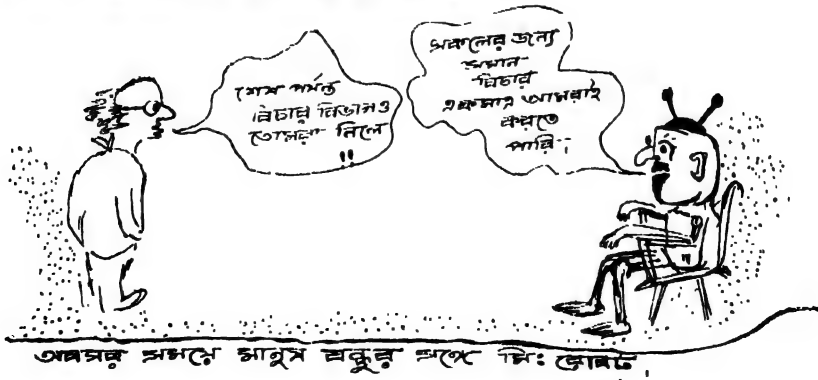 শেষ পর্যন্ত
বিচার বিভাগও
তোমরা নিলে
!!
সকলের জন্য
সমান
বিচার
একমাত্র আমরাই
করতে
পারি।
অবসর সময়ে মানুষ বন্ধুর সঙ্গে মিঃ রোবট